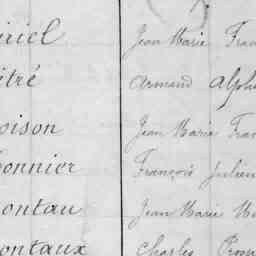 riel Jean Marie Fran
itré Armand Alph
oison Jean Marie Fran
onnier François Julien
ontau Jean Marie
ontaux Charles